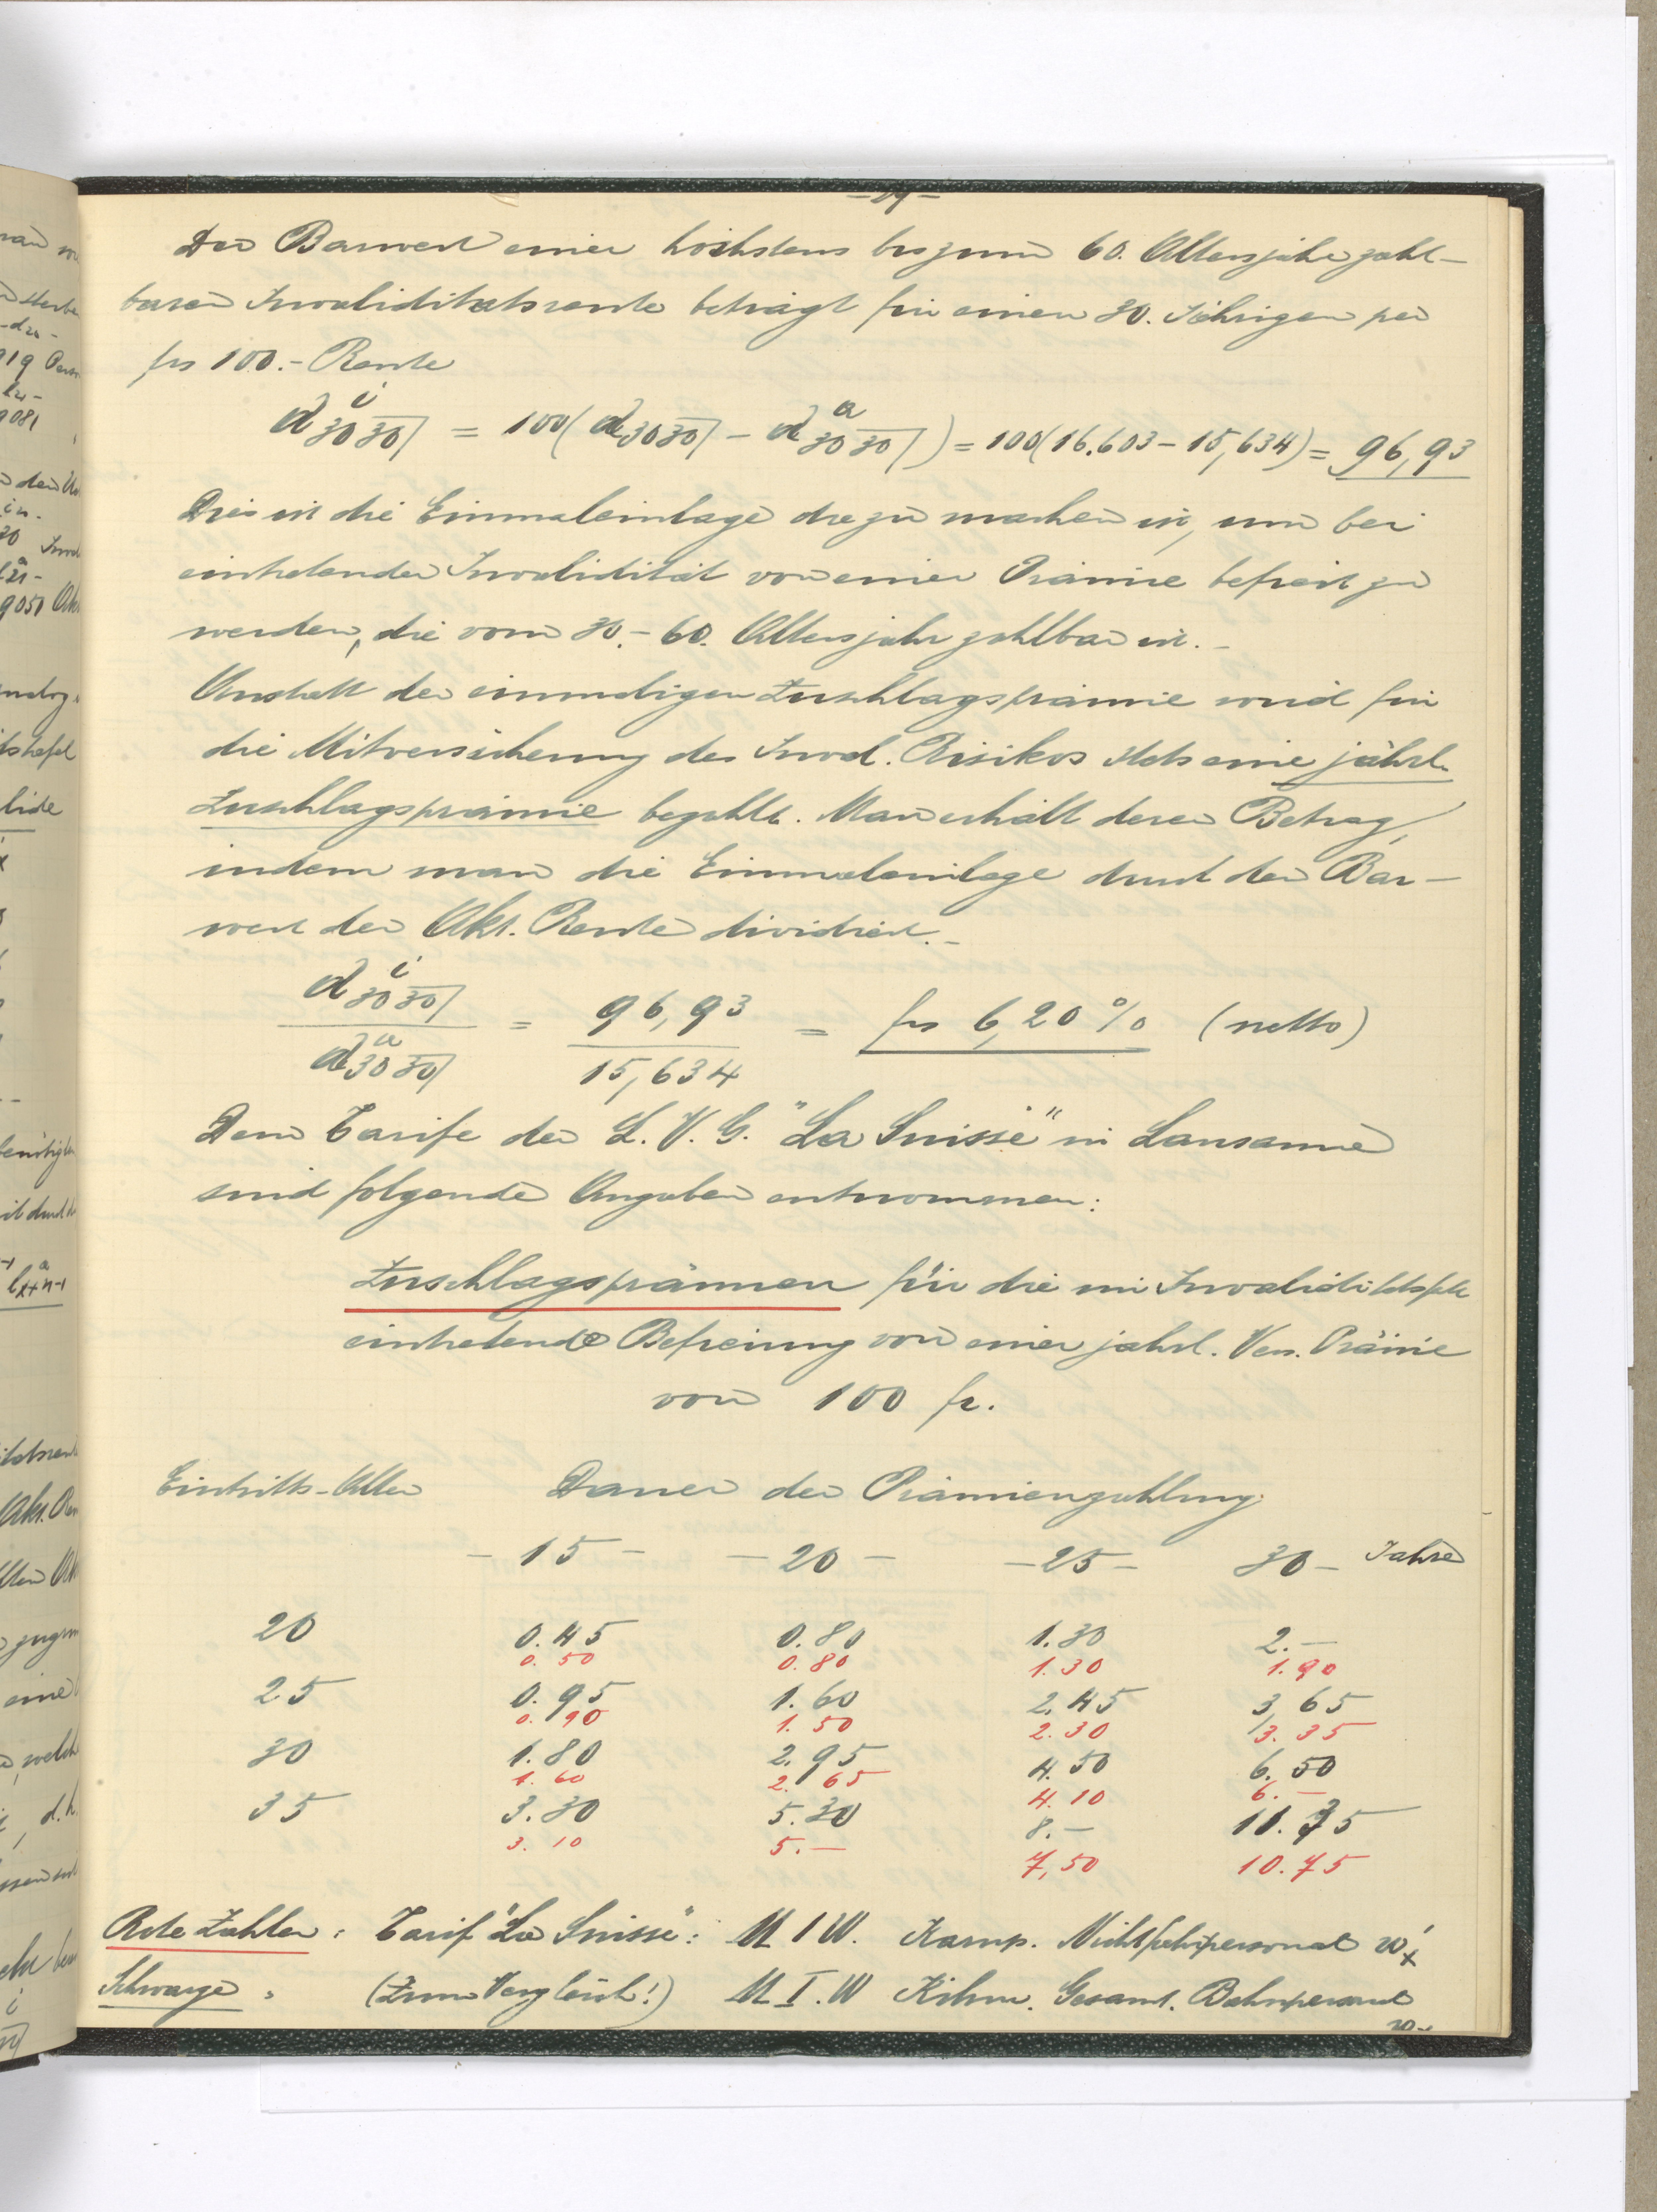 Der Barwert einer höchstens bis zum 60. Altersjahr zahl-
baren Invaliditätsrente beträgt für einen 30. Jährigen per
frs 100.- Rente
a^i 30 30| = 100 ( a 30 30| - a^a 30 30| ) = 100 (16.603 - 15,634) = 96,93
Dies ist die Einmaleinlage die zu machen ist, um bei
eintretender Invalidität von einer Prämie befreit zu
werden, die vom 30.- 60. Altersjahr zahlbar ist.-
Anstatt der einmaligen Zuschlagsprämie wird für
die Mitversicherung des Inval. Risikos stets eine jährl.
Zuschlagsprämie bezahlt. Man erhält deren Betrag,
indem man die Einmaleinlage durch den Bar-
wert der Akt. Rente dividiert.-
a^i 30 30| / a^a 30 30| = 96,93 / 15,634 = frs 6,20 % (netto)
Dem Tarife der L.V.G. "La Suisse" in Lausanne
sind folgende Angaben entnommen:
Zuschlagsprämien für die im Invaliditätsfalle
eintretende Befreiung von einer jährl. Vers. Prämie
von 100 fr.
Eintritts-Alter Dauer der Prämienzahlung
- 15 - - 20 - - 25 - 30 - Jahre
20 0.45 0.80 1.30 2.-
0.50 0.80 1.30 1.90
25 0.95 1.60 2.45 3,65
0.90 1.50 2.30 3.35
30 1.80 2.95 4.50 6.50
1.60 2.65 4.10 6.-
35 3.30 5.30 8.- 11.35
3.10 5.- 7,50 10.75
Rote Zahlen: Tarif "La Suisse": M I W. Kamp. Nichtfahrpersonal
Schwarze " (Zum Vergleich!) M. I. W Kihm. Gesamt. Bahnpersonal